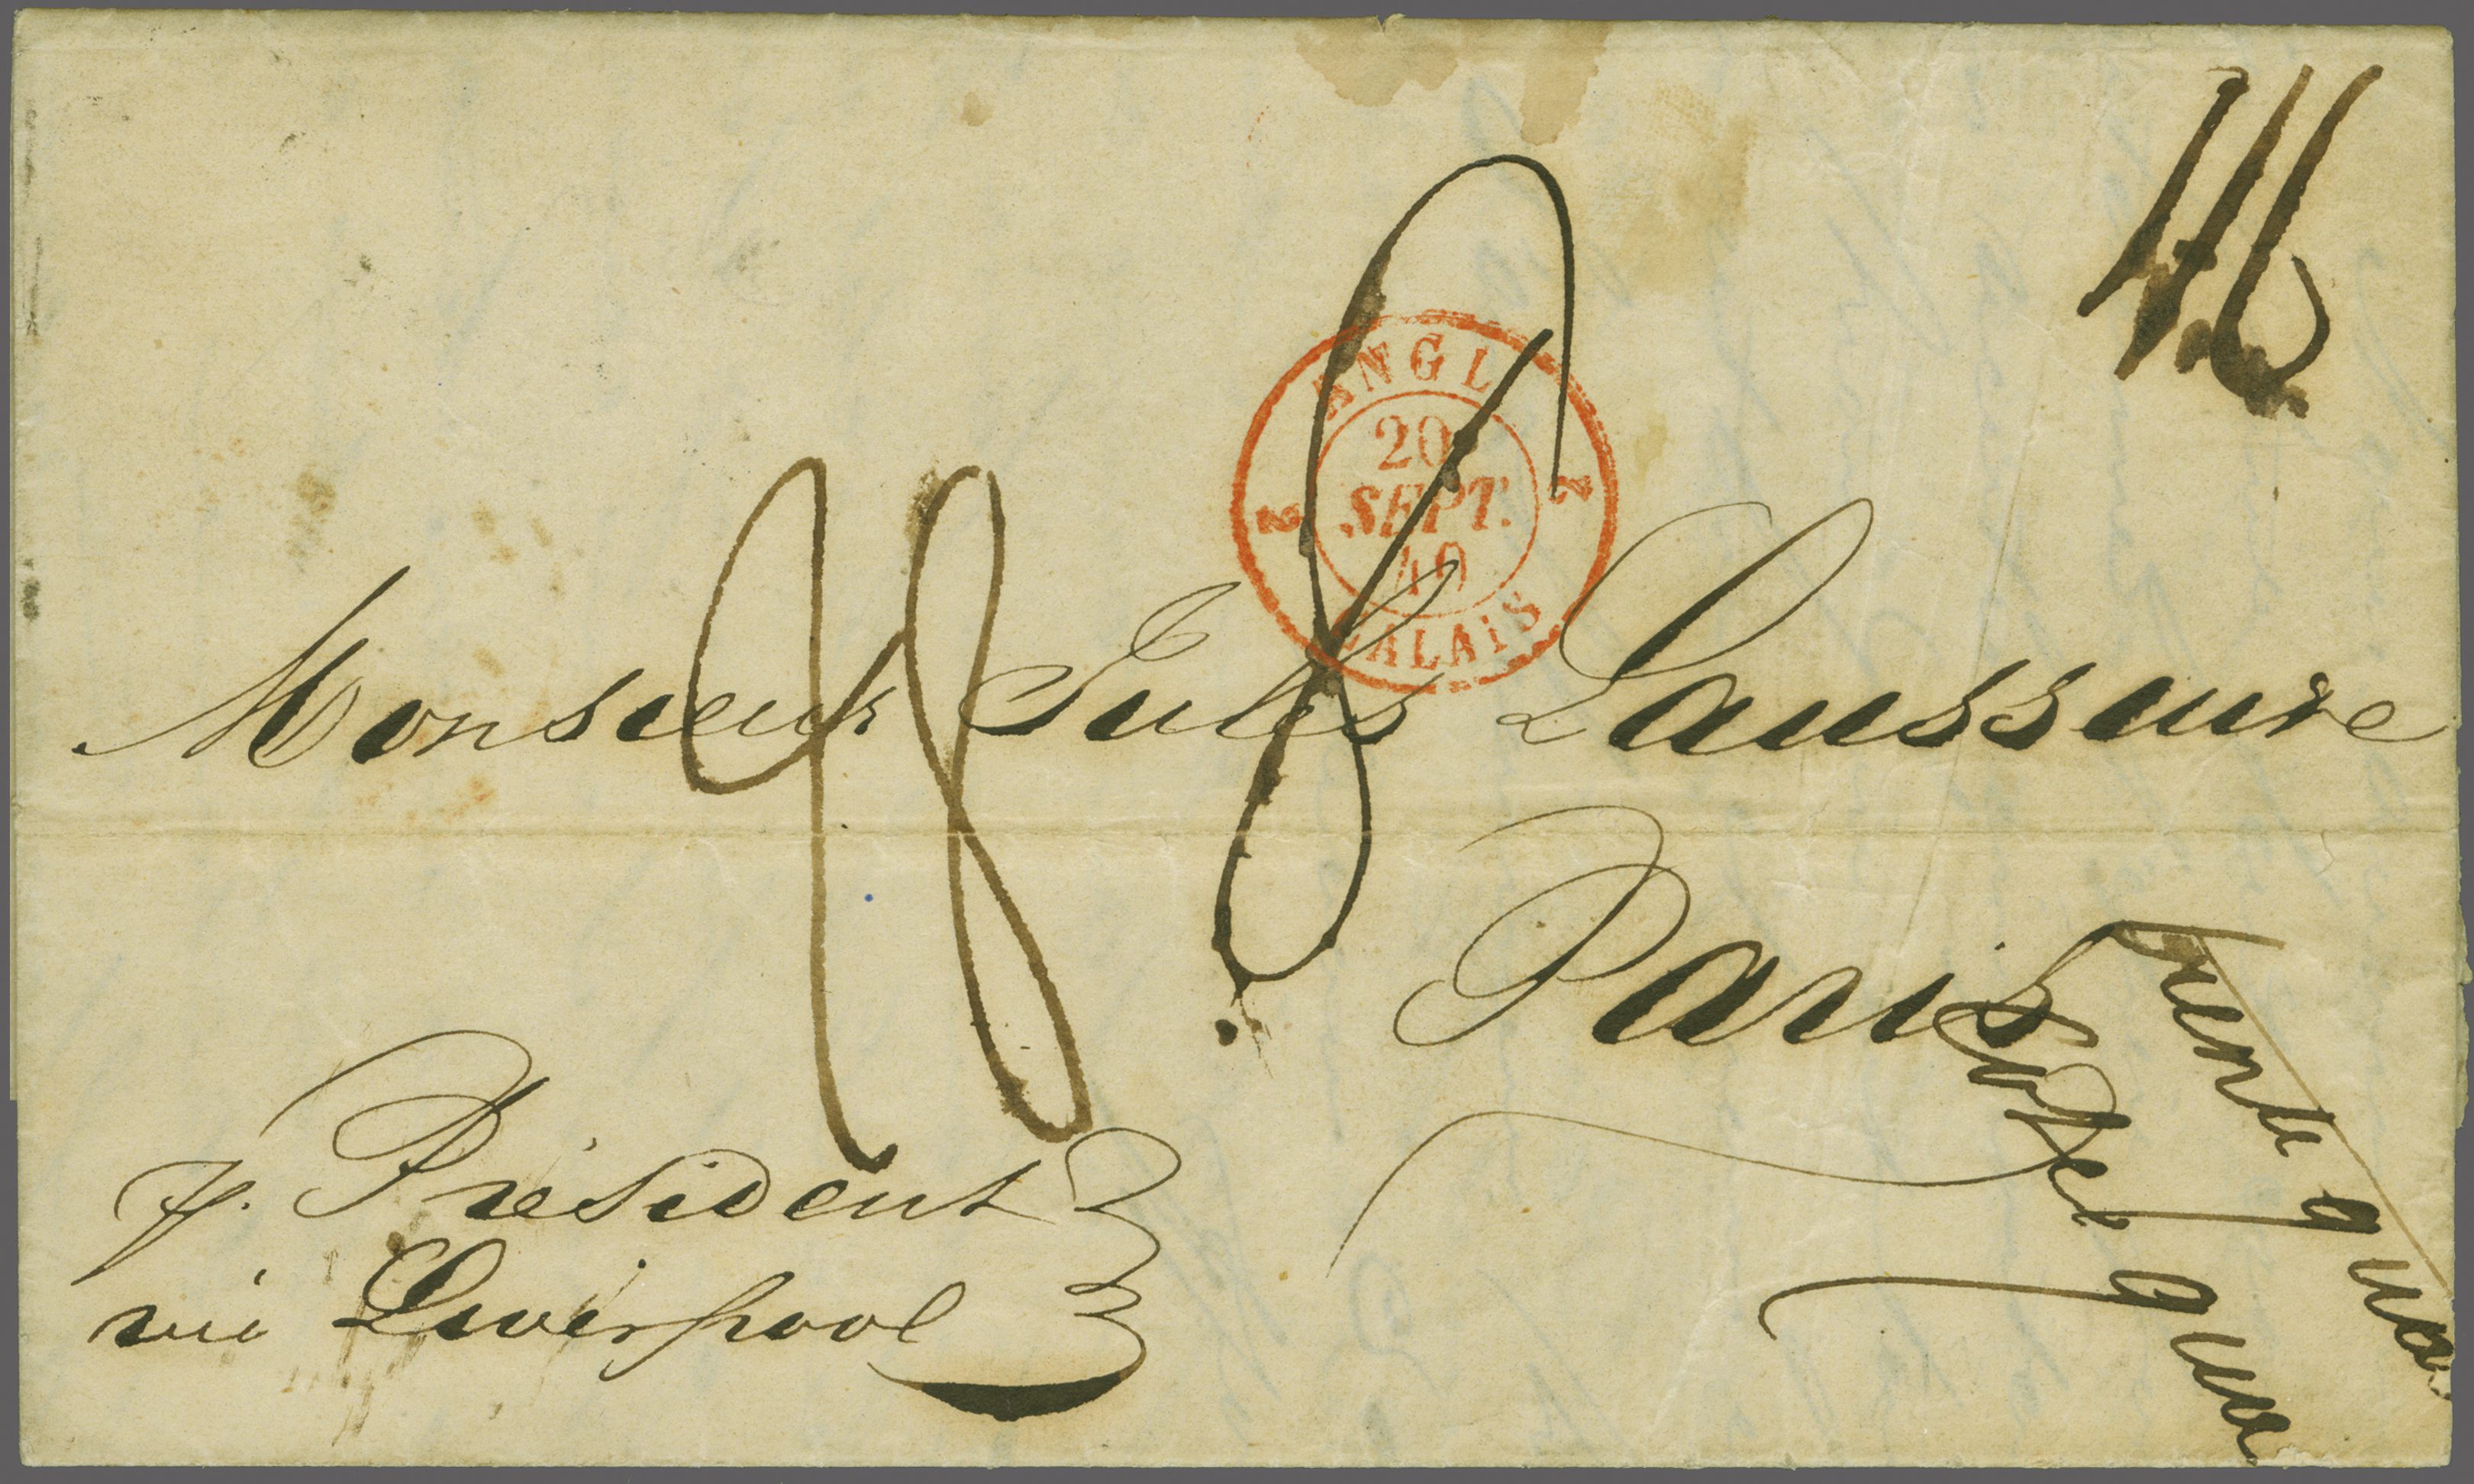 ANGL.
2 20 2
SEPT.
40
CALAIS
Monsieur Jules Laussure
Paris
p. President
via Liverpool
trente qua